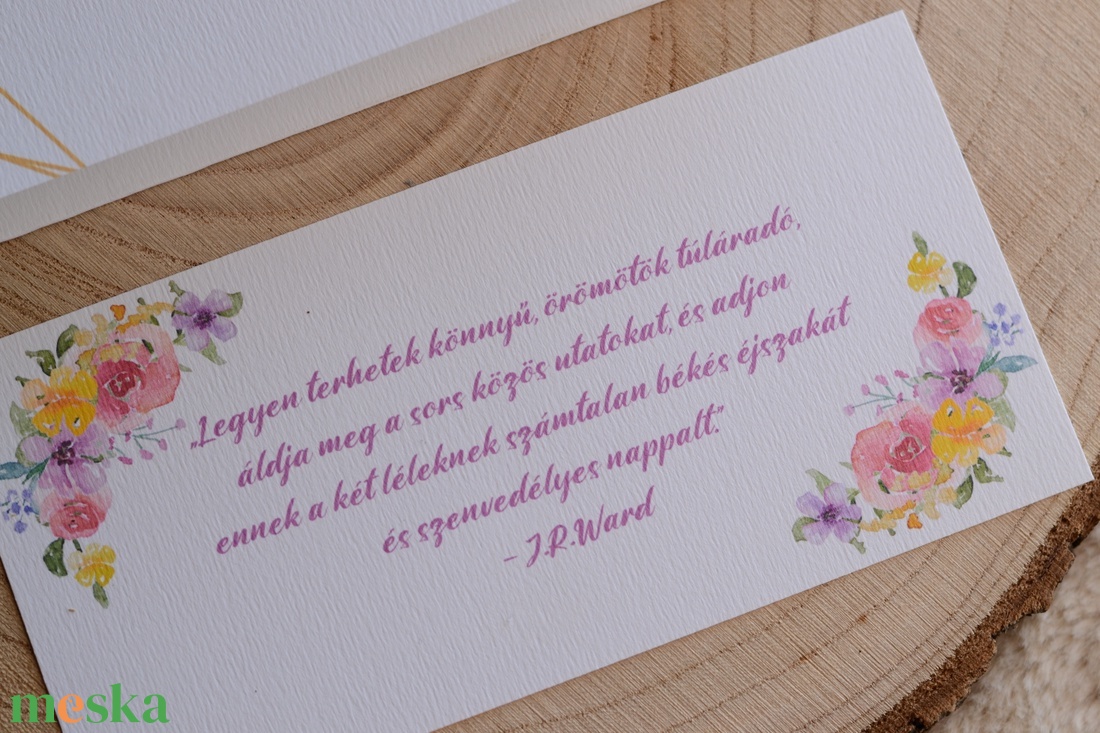 „Legyen terhetek könnyű, örömötök túláradó,
áldja meg a sors közös utatokat, és adjon
ennek a két léleknek számtalan békés éjszakát
és szenvedélyes nappalt.”
– J.R.Ward
meska